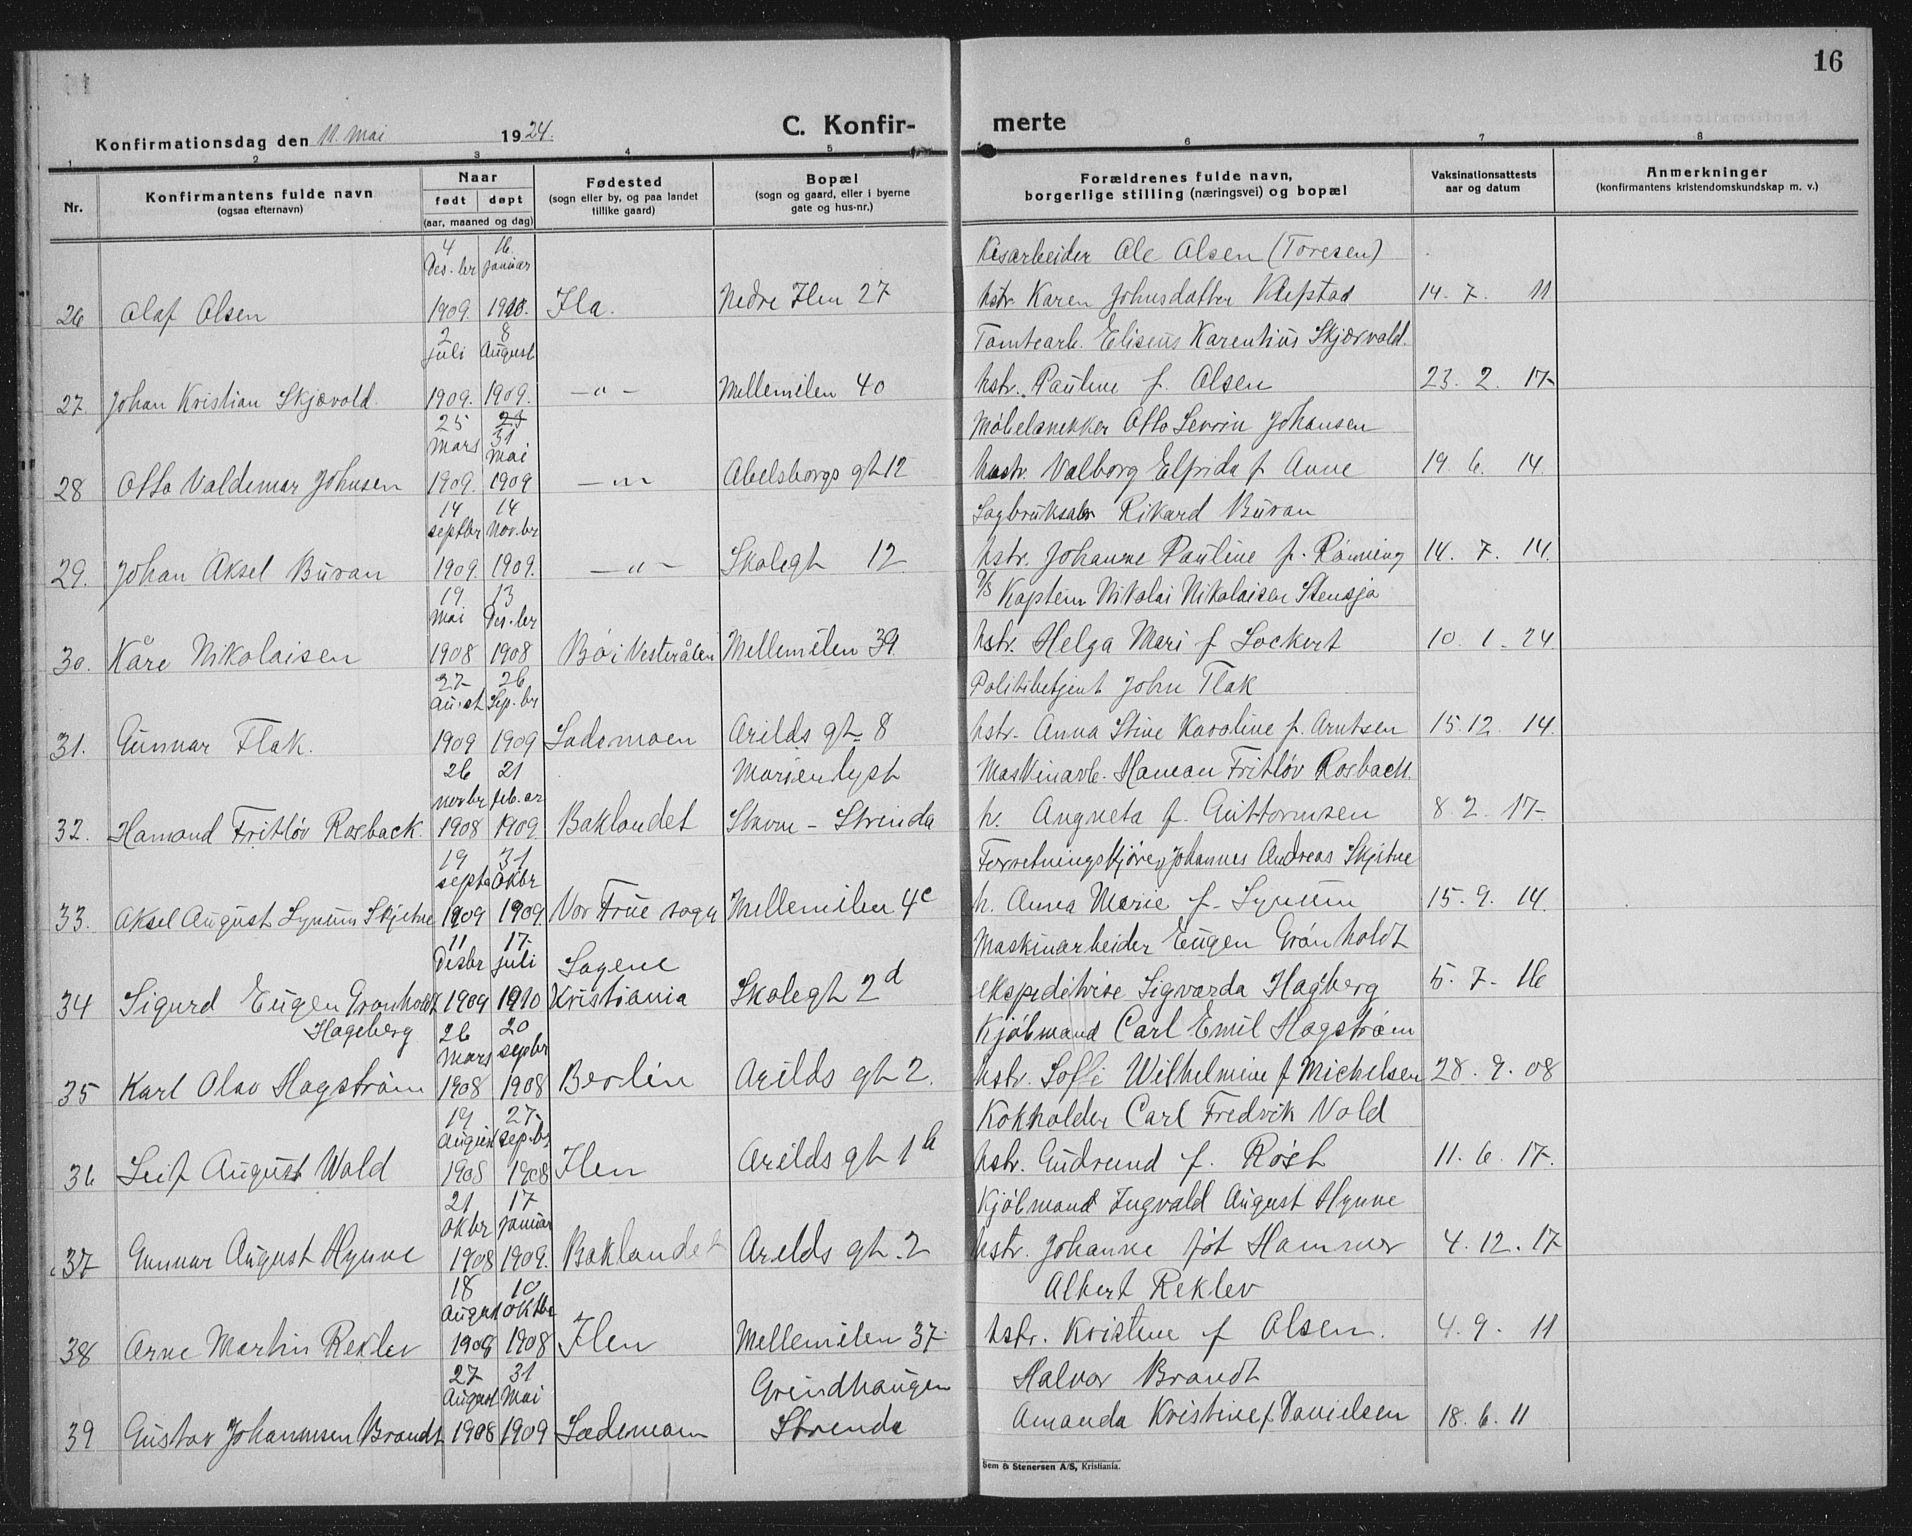 16
Konfirmationsdag den 11. Mai 1924.
C. Konfir- merte
1 2 3 4 5 6 7 8
Nr.
Konfirmantens fulde navn
(ogsaa efternavn)
Naar
født døpt
(aar, maaned og dag)
Fødested
(sogn eller by, og paa landet
tillike gaard)
Bopæl
(sogn og gaard, eller i byerne
gate og hus-nr.)
Forældrenes fulde navn,
borgerlige stilling (næringsvei) og bopæl
Vaksinationsattests
aar og datum
Anmerkninger
(konfirmantens kristendomskundskap m. v.)
4 16. Løsarbeider Ole Olsen (Toresen)
Des.br Januar
26 Olaf Olsen 1909. 1910. Ila. Nedre Ilen 27 hstr. Karen Johnsdatter Klefstad 14. 7. 11
2 8 Tomtearb. Eliseus Karentius Skjærvold.
Juli August
27. Johan Kristian Skjævold 1909. 1909. —"— Mellemilen 40 hstr. Pauline f. Olsen 23. 2. 17
25 23 Møbelsnekker Otto Sevrin Johansen
Mars 31 Mai
28 Otto Valdemar Johnsen 1909. 1909 —"— Abelsborgs gt 12 hustr. Valborg Elfrida f Aune 19. 6. 14.
14 14 Sagbruksarb Rikard Buran
septbr Nov.br
29. Johan Aksel Buran 1909. 1909. —"— Skolegt 12 hstr. Johanne Pauline f. Rønning 14. 7. 14.
19 13 D/S Kaptein Nikolai Nikolaisen Stensjø
Mai Des.br
30. Kåre Nikolaisen 1908 1908 Bø i Vesterålen Mellemilen 39 hstr. Helga Mari f Lockert 10. 1. 24
27 26 Politibetjent John Flak
Au.st Sep.br
31. Gunnar Flak. 1909 1909 Lademoen Arilds gt. 8 hstr. Anna Stine Karoline f. Arntsen 15. 12. 14.
26 21 Marienlyst Maskinarb. Haman Fritløv Rosback.
Novbr feb.ar
32. Hamand Fritløv Rosback. 1908 1909. Baklandet Stavne - Strinda h. Angneta f. Guttormsen 8. 2. 17.
19 31 Forretningskjører, Johannes Andreas Skjetne
septb Okbr
33. Aksel August Lynum Skjetne 1909 1909. Vor Frue sogn Mellemilen 4c h. Anna Marie f. Lynum 15. 9. 14.
11 17 Maskinarbeider Eugen Grønholdt
Desbr Juli Sagene
34 Sigurd Eugen Grønholdt 1909 1910 Kristiania Skolegt 2d ekspeditrise Sigvarda Hagberg 5. 7. 16
Hageberg
26 20 Kjøbmand Carl Emil Hagstrøm
Mars sepbr
35 Karl Olav Hagstrøm 1908 1908 Berlin Arilds gt 2. hstr. Soffi Wilhelmine f Michelsen 28. 9. 08
19 27 Kokholder Carl Fredrik Vold
August sep.br
36 Leif August Wold 1908 1908 Ilen Arilds gt 1b hstr. Gudrund f. Rost 11. 6. 17.
21 17 Kjøbmand Ingvald August Hynne
Okbr Januar
37 Gunnar August Hynne 1908 1909. Baklandet Arilds gt. 2 hstr. Johanne føt Hammer 4. 12. 17
18 10 Albert Reklev
August Oktbr
38 Arne Martin Reklev 1908 1908 Ilen Mellemilen 37. hstr. Kristine f Olsen. 4. 9. 11
27 31 Grindhaugen Halvor Brandt
August Mai
39 Gustav Johannesen Brandt 1908 1909 Lademoen Strinda Amanda Kristine f. Danielsen 18. 6. 11
Sem & Stenersen A/S, Kristiania.